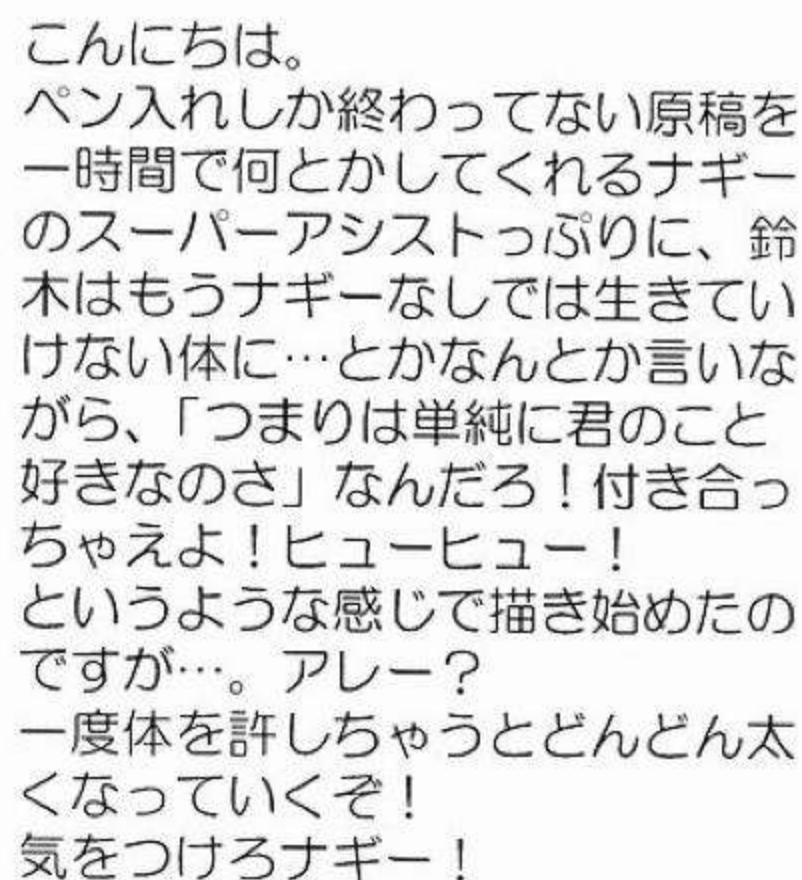 こんにちは。
ペン入れしか終わってない原稿を
一時間で何とかしてくれるナギー
のスーパーアシストっぷりに、鈴
木はもうナギーなしでは生きてい
けない体に…とかなんとか言いな
がら、「つまりは単純に君のこと
好きなのさ」なんだろ！付き合っ
ちゃえよ！ヒューヒュー！
というような感じで描き始めたの
ですが…。アレー？
一度体を許しちゃうとどんどん太
くなっていくぞ！
気をつけろナギー！